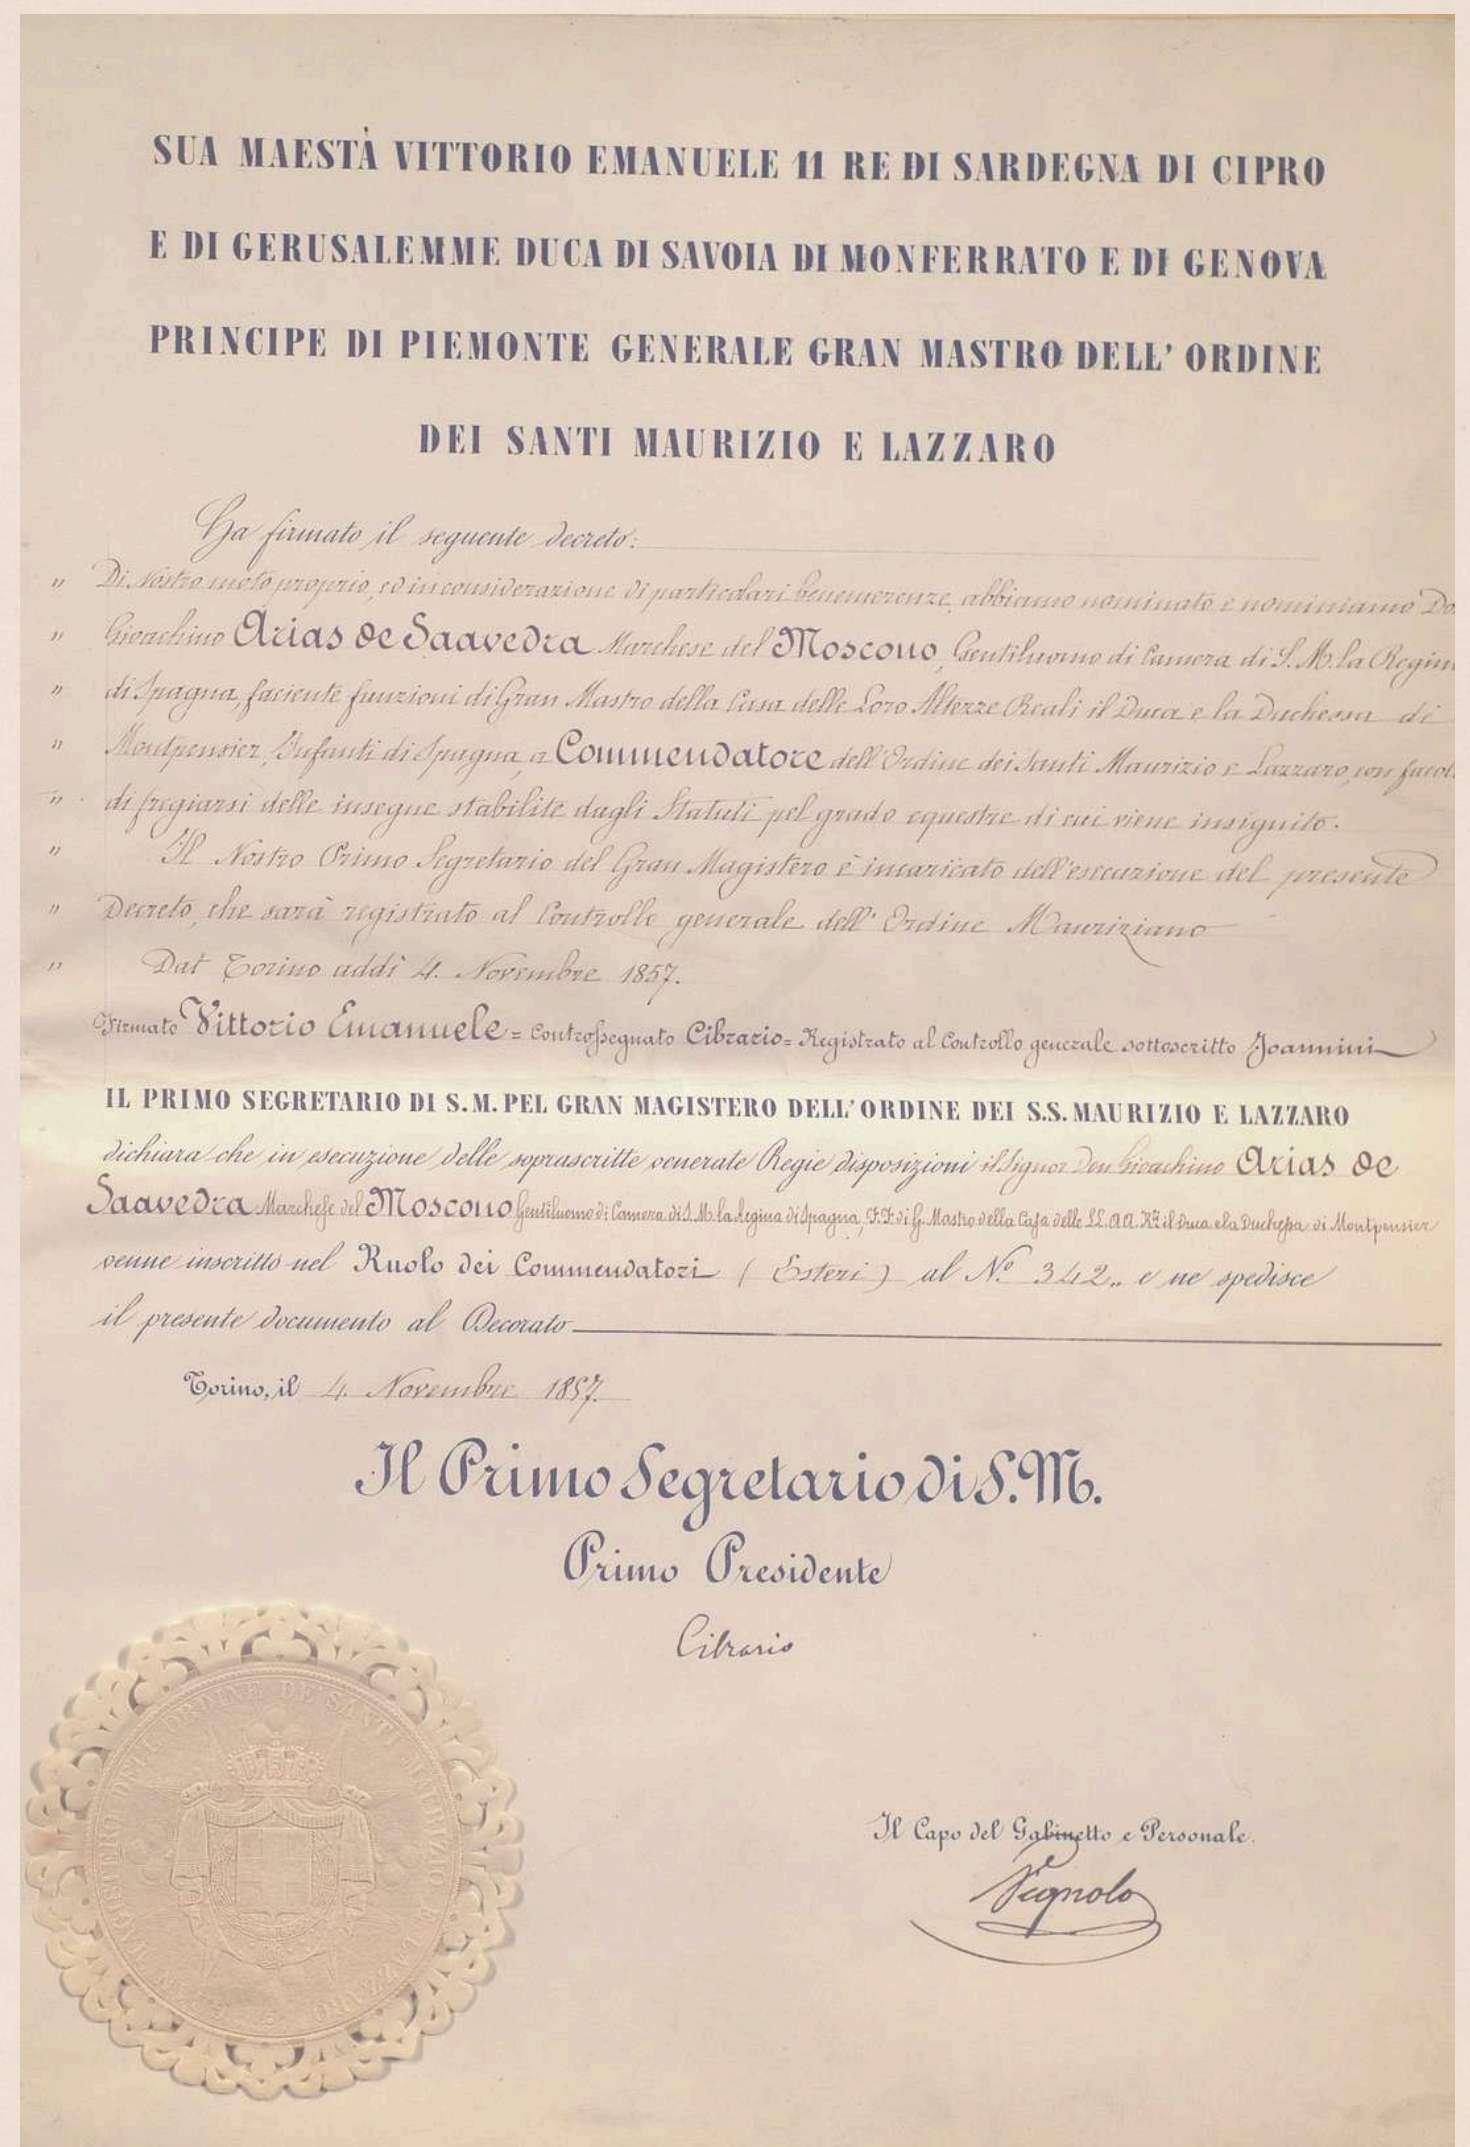 SUA MAESTÀ VITTORIO EMANUELE II RE DI SARDEGNA DI CIPRO
E DI GERUSALEMME DUCA DI SAVOIA DI MONFERRATO E DI GENOVA
PRINCIPE DI PIEMONTE GENERALE GRAN MASTRO DELL' ORDINE
DEI SANTI MAURIZIO E LAZZARO
Ha firmato il seguente decreto:
" Di Nostro moto proprio, ed in considerazione di particolari benemerenze, abbiamo nominato e nominiamo Do
" Gioachino Arias de Saavedra Marchese del Moscono, Gentiluomo di Camera di S. M. la Regin
" di Spagna, faciente funzioni di Gran Mastro della Casa delle Loro Altezze Reali il Duca e la Duchessa di
" Montpensier, Infanti di Spagna, a Commendatore dell'Ordine dei Santi Maurizio e Lazzaro, con facol
" di fregiarsi delle insegne stabilite dagli Statuti pel grado equestre di cui viene insignito.
" Il Nostro Primo Segretario del Gran Magistero è incaricato dell'esecuzione del presente
" Decreto, che sarà registrato al Controllo generale dell' Ordine Mauriziano
" Dat Torino addì 4. Novembre 1857.
Firmato Vittorio Emanuele = Controssegnato Cibrario = Registrato al Controllo generale sottoscritto Joannini
IL PRIMO SEGRETARIO DI S. M. PEL GRAN MAGISTERO DELL' ORDINE DEI S.S. MAURIZIO E LAZZARO
dichiara che in esecuzione delle soprascritte venerate Regie disposizioni il Signor Don Gioachino Arias de
Saavedra Marchese del Moscono Gentiluomo di Camera di S. M. la Regina di Spagna, F.F. di G. Mastro della Casa delle LL. AA. RR. il Duca e la Duchessa di Montpensier
venne inscritto nel Ruolo dei Commendatori (Esteri) al Nº 342„ e ne spedisce
il presente documento al Decorato
Torino, il 4. Novembre 1857.
Il Primo Segretario di S. M.
Primo Presidente
Cibrario
GRAN MAGISTERO DELL'ORDINE DE' SANTI MAURIZIO E LAZZARO
Il Capo del Gabinetto e Personale.